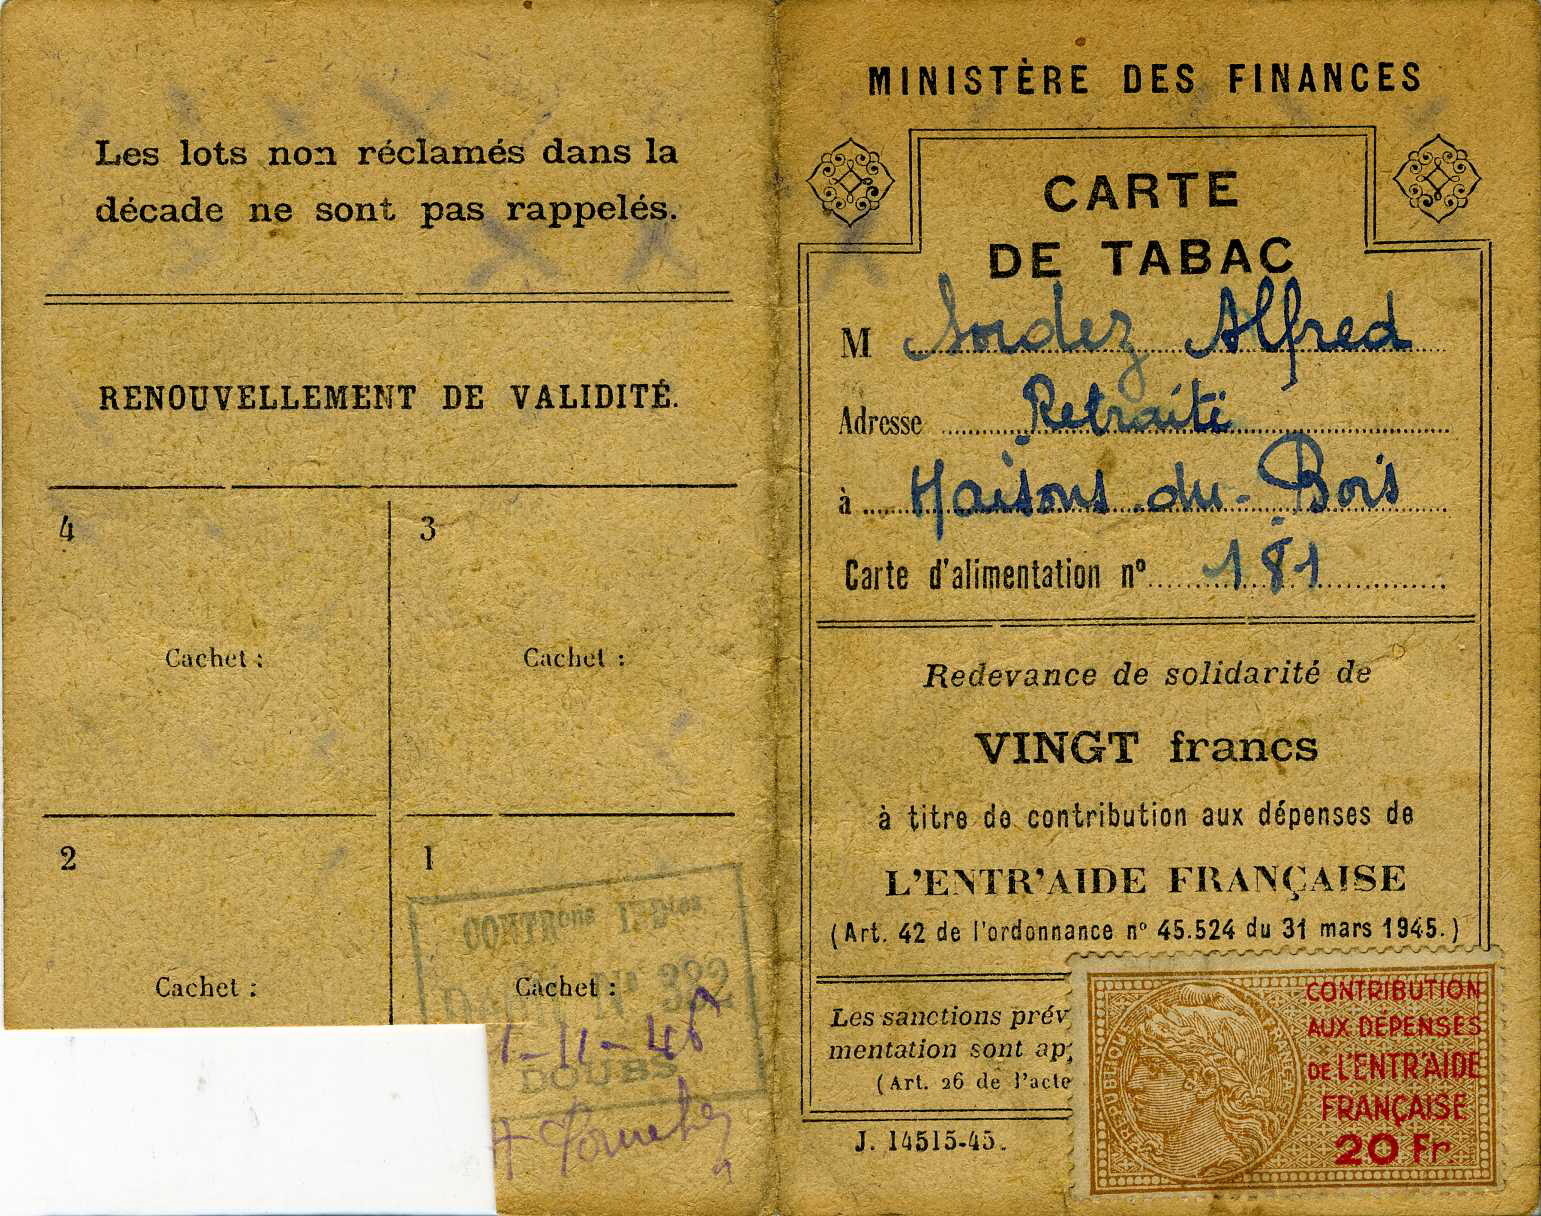 Les lots non réclamés dans la
décade ne sont pas rappelés.
RENOUVELLEMENT DE VALIDITÉ.
4
3
Cachet :
Cachet :
2
1
Cachet :
Cachet :
Nº 322
1-11-45
DOUBS
MINISTÈRE DES FINANCES
CARTE
DE TABAC
M Sordez Alfred
Adresse Retraité
à Maisons-du-Bois
Carte d'alimentation nº 181
Redevance de solidarité de
VINGT francs
à titre de contribution aux dépenses de
L'ENTR'AIDE FRANÇAISE
(Art. 42 de l'ordonnance nº 45.524 du 31 mars 1945.)
Les sanctions prév
mentation sont ap
(Art. 26 de l'acte
J. 14515-45.
RÉPUBLIQUE FRANÇAISE
CONTRIBUTION
AUX DÉPENSES
DE L'ENTR'AIDE
FRANÇAISE
20 Fr.